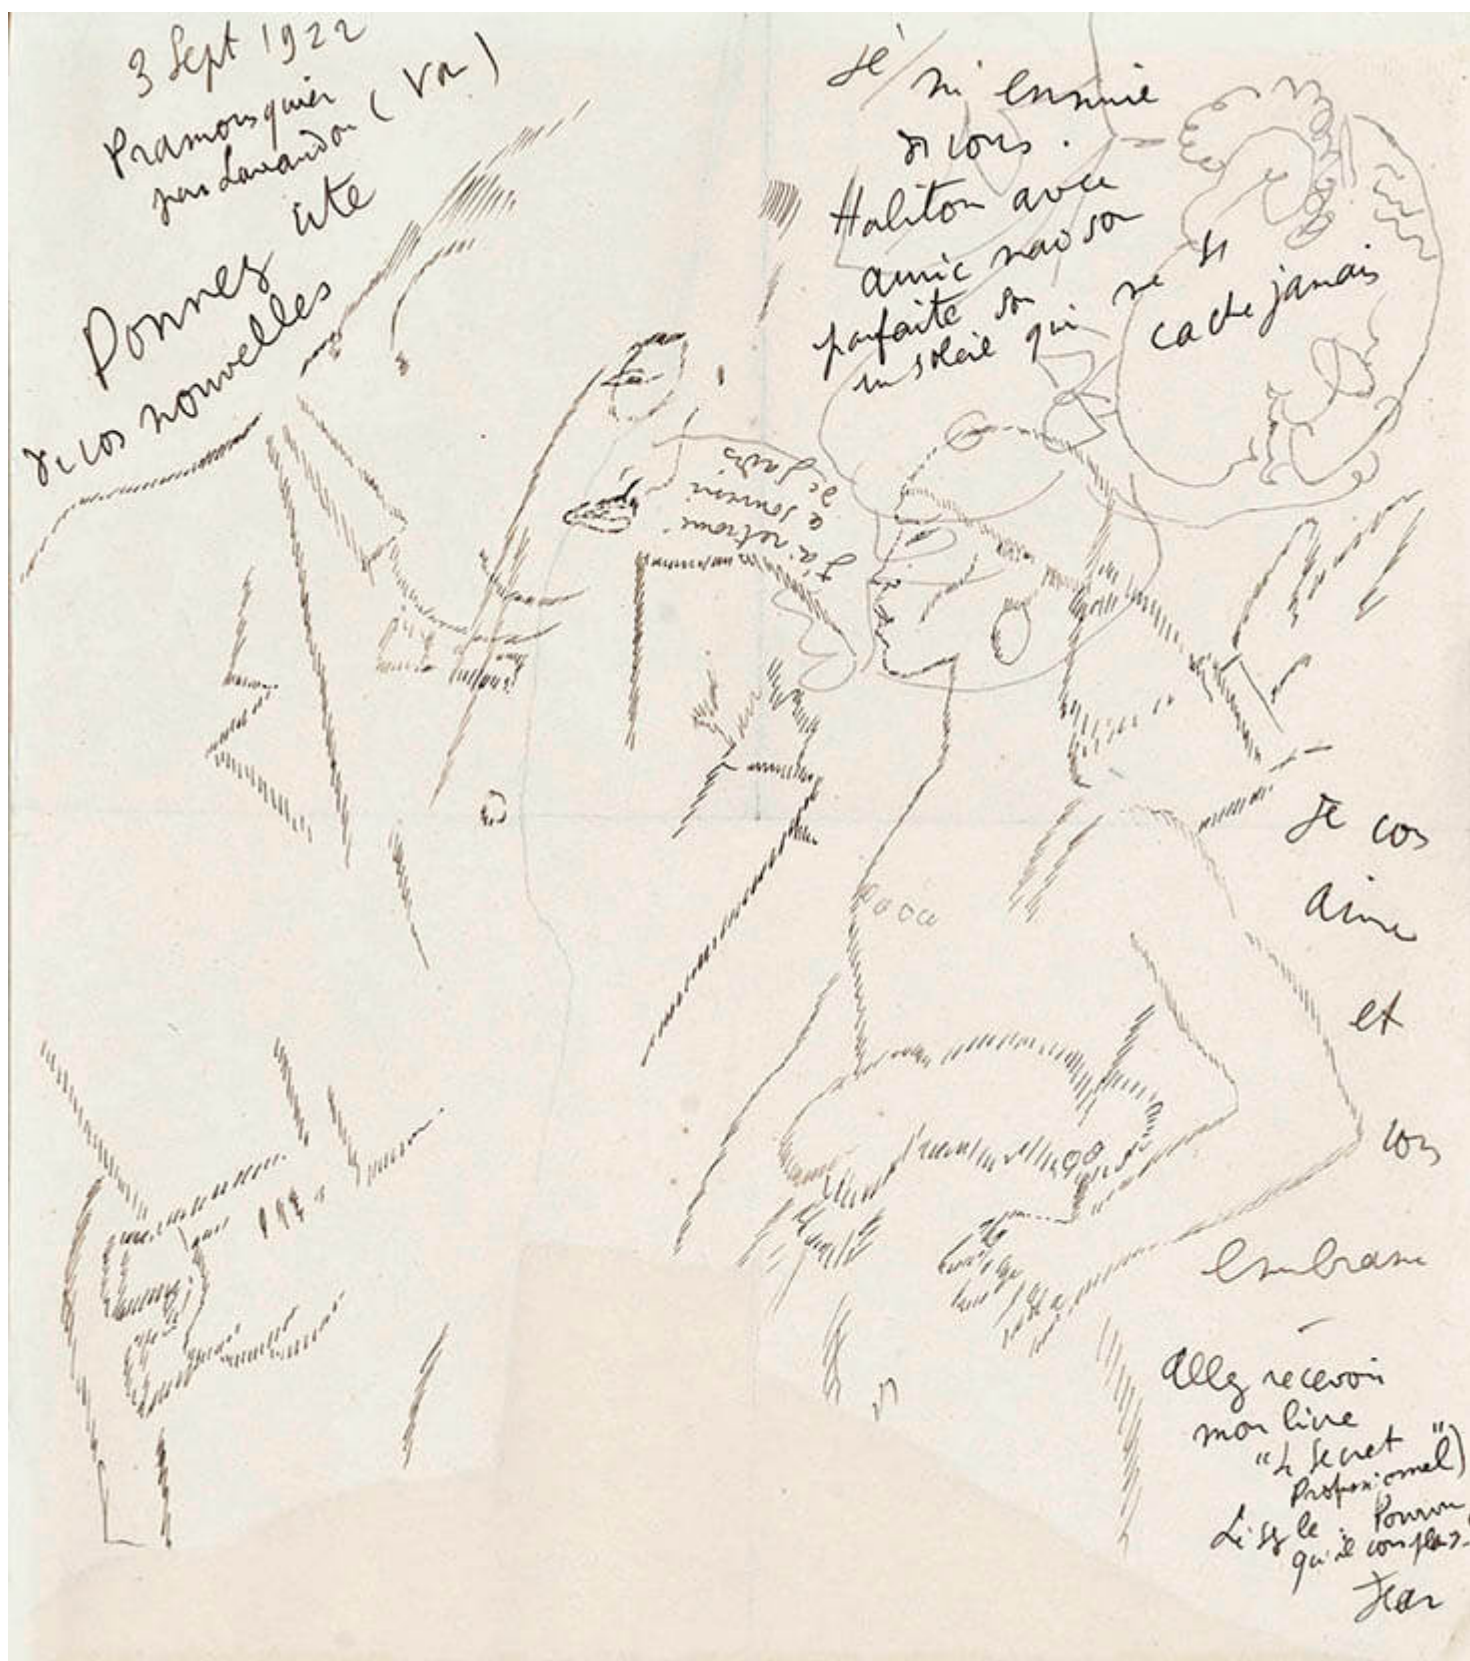 3 Sept 1922
Pramousquier
par Lavandou (Var)
Donnez vite
de vos nouvelles
Je m'ennuie
de vous.
Habiton avec
amie maison
parfaite son
un soleil qui ne se
cache jamais
J'ai retrouvé
ce souvenir
de
Je vous
aime
et
vous
embrasse
Allez recevoir
mon livre
"Le Secret
Professionnel"
Lisez le. Pourvu
qu'il vous plaise
Jean